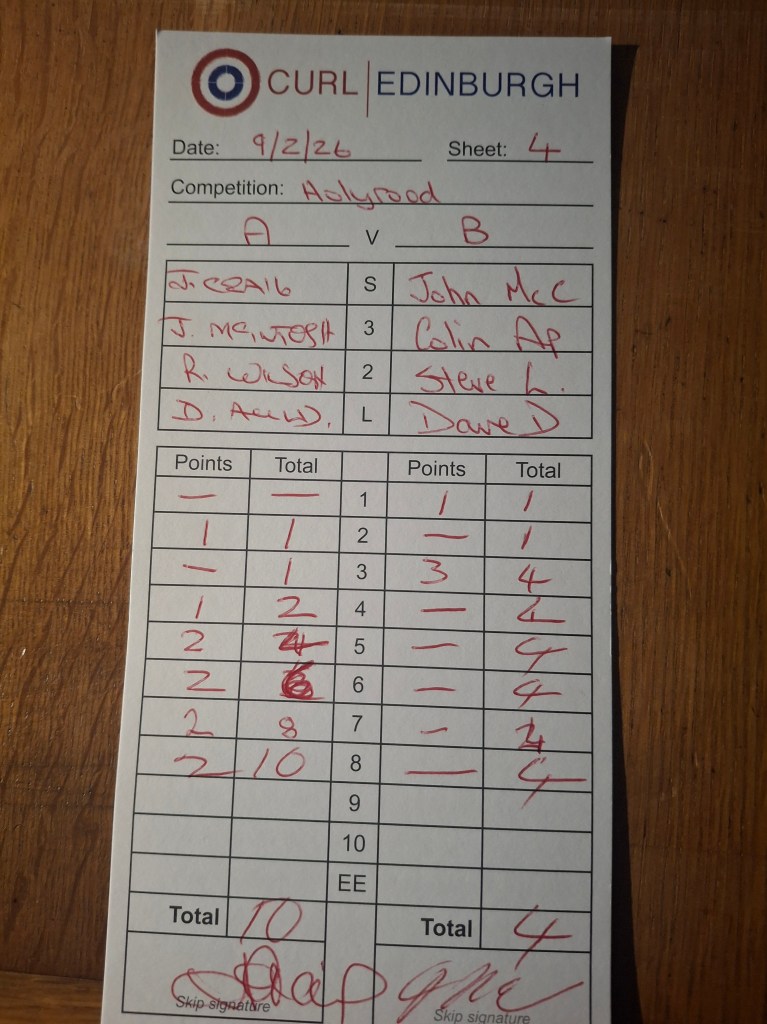 CURL | EDINBURGH
Date: 9/2/26 Sheet: 4
Competition: Holyrood
A V B
J. CRAIG S John McC
J. MCINTOSH 3 Colin Ap
R. WILSON 2 Steve L.
D. L Dave D
Points Total Points Total
— — 1 1 1
1 1 2 — 1
— 1 3 3 4
1 2 4 — 4
2 4 5 — 4
2 6 6 — 4
2 8 7 - 4
2 10 8 — 4
9
10
EE
Total 10 Total 4
Skip signature Skip signature